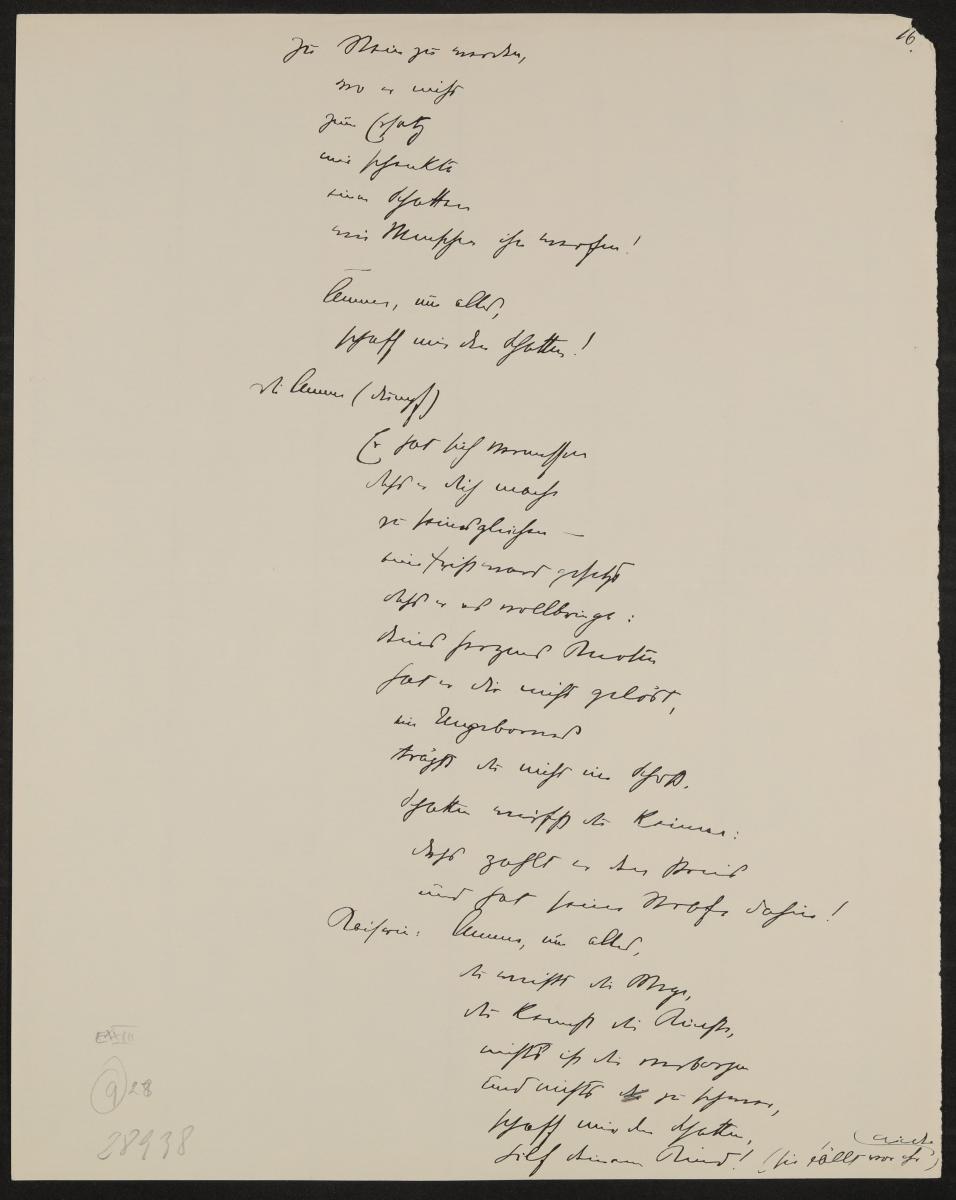 16.
zu Stein zu werden,
wo er nicht
zum Ersatz
mir schenkte
einen Schatten
wie Menschen ihn werfen!
Amme, um alles,
schaff mir den Schatten!
die Amme (dumpf)
Er hat sich vermessen
dass er dich mache
zu seinesgleichen —
eine Frist ward gesetzt
dass er es vollbringe:
deines Herzens Knoten
hat er dir nicht gelöst,
ein Ungebornes
trägst du nicht im Schoß.
Schatten wirfst du keinen:
dess zahlt er den Preis
und hat seine Strafe dahin!
Kaiserin: Amme, um alles,
du weißt die Wege,
du kennst die Künste,
nichts ist dir verborgen
und nichts zu schwer,
schaff mir den Schatten,
hilf deinem Kind! (sie fällt vor ihr
nieder)
28
28938